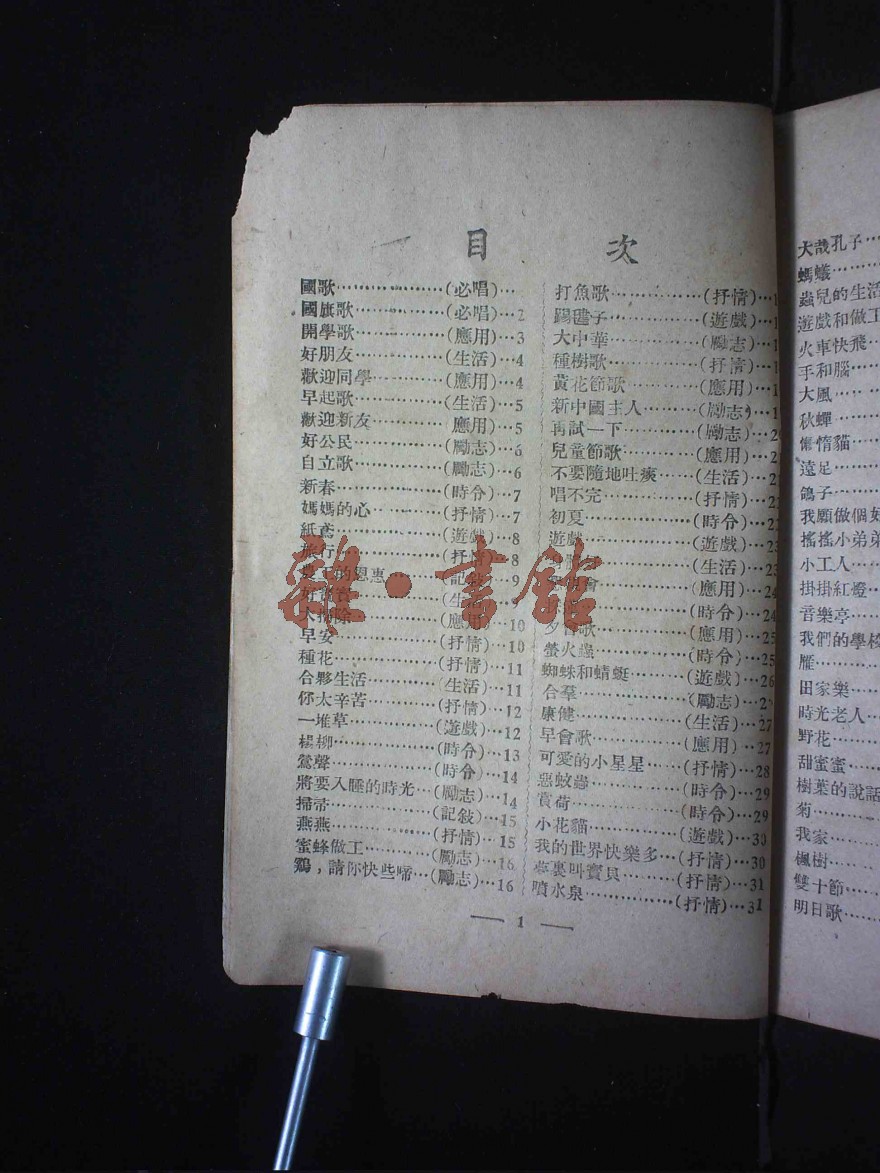 目 次
國歌………………(必唱)…
國旗歌……………(必唱)…2
開學歌……………(應用)…3
好朋友……………(生活)…4
歡迎同學…………(應用)…4
早起歌……………(生活)…5
歡迎新友…………應用)…5
好公民……………(勵志)…6
自立歌……………(勵志)…6
新春………………(時令)…7
媽媽的心…………(抒情)…7
紙鳶………………(遊戲)…8
旅行………………(抒情)…8
的恩惠…………(記敍)…9
大掃除……………(應用)…10
早安………………(抒情)…10
種花………………(抒情)…11
合夥生活…………(生活)…11
你太辛苦…………(抒情)…12
一堆草……………(遊戲)…12
楊柳………………(時令)…13
鶯聲………………(時令)…14
將要入睡的時光…(勵志)…14
掃帚………………(記敍)…15
燕燕………………(抒情)…15
蜜蜂做工…………(勵志)…16
鷄，請你快些啼…(勵志)…16
打魚歌……………(抒情)…1
踢毽子……………(遊戲)…1
大中華……………(勵志)…1
種樹歌……………(抒情)…1
黃花節歌…………(應用)…1
新中國主人………(勵志)…1
再試一下…………(勵志)…2
兒童節歌…………(應用)…2
不要隨地吐痰……(生活)…2
唱不完……………(抒情)…2
初夏………………(時令)…22
遊戲………………(遊戲)…23
(生活)…23
會……………(應用)…24
(時令)…24
夕會歌……………(應用)…25
螢火蟲……………(時令)…25
蜘蛛和蜻蜓………(遊戲)…26
合羣………………(勵志)…2
康健………………(生活)…27
早會歌……………(應用)…27
可愛的小星星……(抒情)…28
惡蚊蟲……………(時令)…29
賞荷………………(時令)…29
小花貓……………(遊戲)…30
我的世界快樂多…(抒情)…30
夢裏叫寶貝………(抒情)…31
噴水泉……………(抒情)…31
— 1 —
大哉孔子…
螞蟻……
蟲兒的生活
遊戲和做工
火車快飛…
手和腦……
大風………
秋蟬………
懶惰貓……
遠足………
鴿子………
我願做個好
搖搖小弟弟
小工人……
掛掛紅燈…
音樂亭……
我們的學校
雁…………
田家樂……
時光老人…
野花………
甜蜜蜜……
樹葉的說話
菊…………
我家………
楓樹………
雙十節……
明日歌……
雜·書館